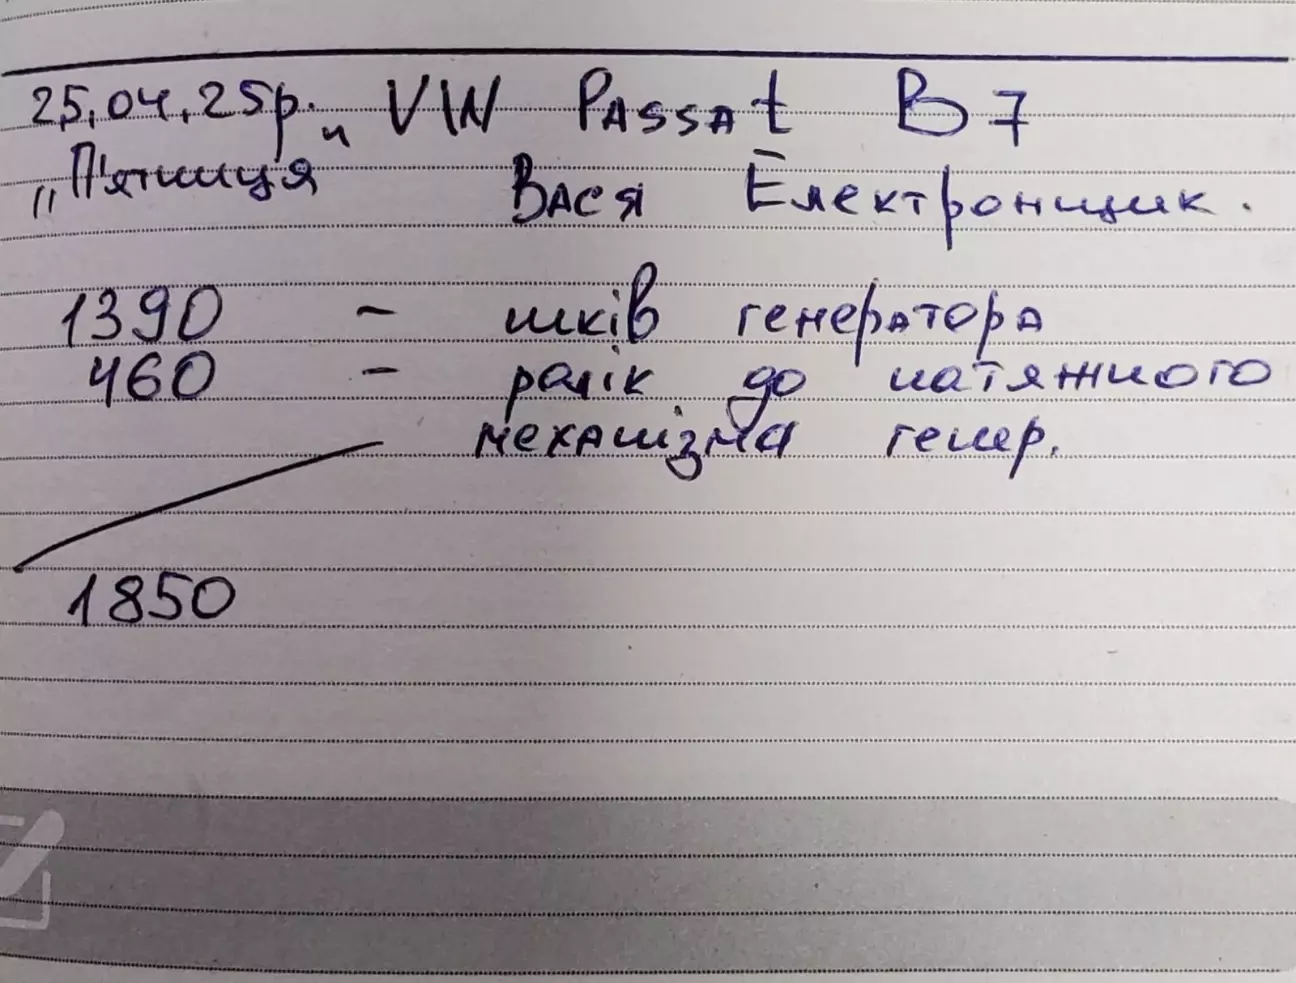 25,04,25р. VW PASSAt B7
„П'ятниця" Вася Електронщик.
1390 - шків генератора
460 - ролік до натяжного
механізма генер.
1850